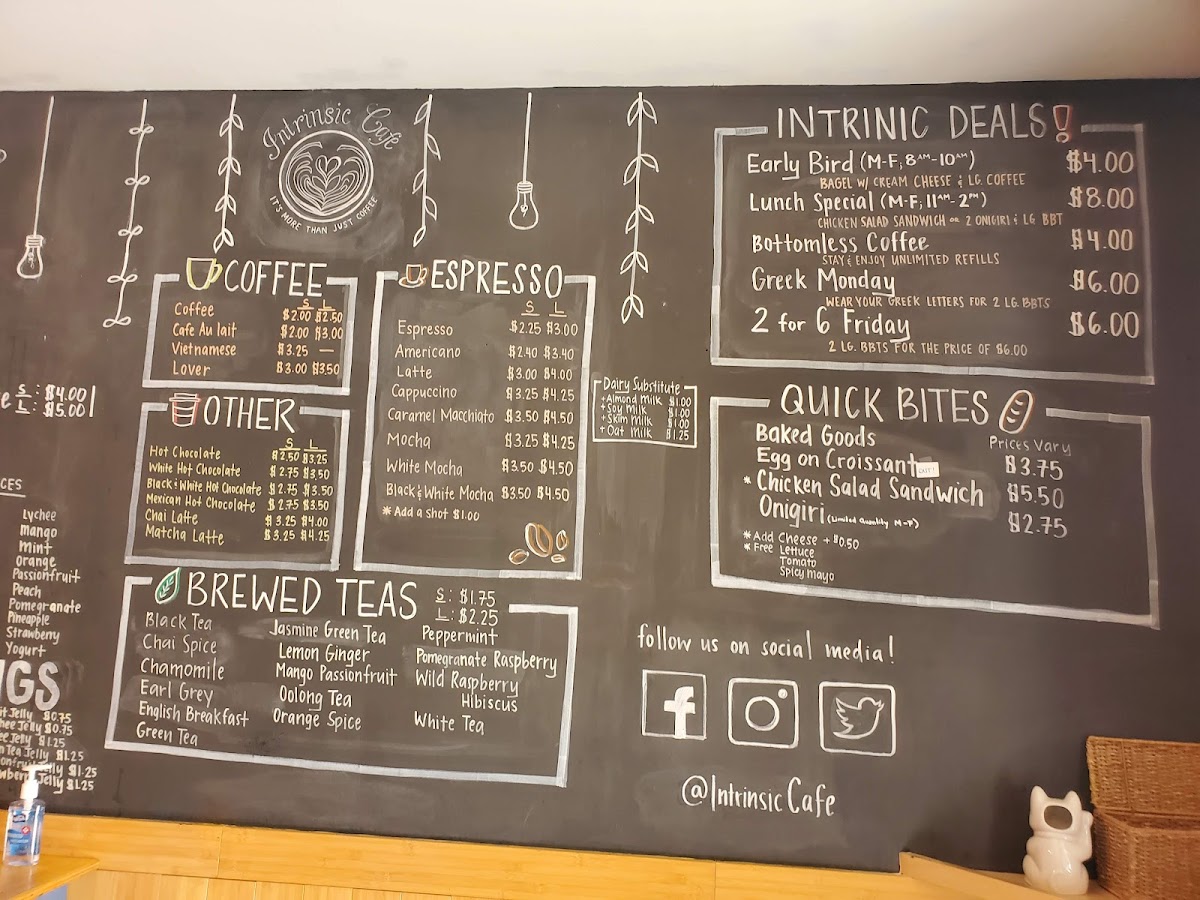 Intrinsic Cafe
IT'S MORE THAN JUST COFFEE
S: $4.00
L: $5.00
Lychee
Mango
Mint
Orange
Passionfruit
Peach
Pomegranate
Pineapple
Strawberry
Yogurt
Jelly $0.75
Jelly $0.75
Jelly $1.25
Tea Jelly $1.25
$1.25
Jelly $1.25
COFFEE
S L
Coffee $2.00 $2.50
Cafe Au lait $2.00 $3.00
Vietnamese $3.25 —
Lover $3.00 $3.50
OTHER
S L
Hot Chocolate $2.50 $3.25
White Hot Chocolate $2.75 $3.50
Black & White Hot Chocolate $2.75 $3.50
Mexican Hot Chocolate $2.75 $3.50
Chai Latte $3.25 $4.00
Matcha Latte $3.25 $4.25
ESPRESSO
S L
Espresso $2.25 $3.00
Americano $2.40 $3.40
Latte $3.00 $4.00
Cappuccino $3.25 $4.25
Caramel Macchiato $3.50 $4.50
Mocha $3.25 $4.25
White Mocha $3.50 $4.50
Black & White Mocha $3.50 $4.50
* Add a shot $1.00
Dairy Substitute
+Almond Milk $1.00
+Soy Milk $1.00
+Skim Milk $1.00
+Oat Milk $1.25
BREWED TEAS S: $1.75
L: $2.25
Black Tea
Chai Spice
Chamomile
Earl Grey
English Breakfast
Green Tea
Jasmine Green Tea
Lemon Ginger
Mango Passionfruit
Oolong Tea
Orange Spice
Peppermint
Pomegranate Raspberry
Wild Raspberry
Hibiscus
White Tea
INTRINIC DEALS!
Early Bird (M-F, 8AM-10AM) $4.00
BAGEL W/ CREAM CHEESE & LG. COFFEE
Lunch Special (M-F, 11AM-2PM) $8.00
CHICKEN SALAD SANDWICH OR 2 ONIGIRI & LG BBT
Bottomless Coffee $4.00
STAY & ENJOY UNLIMITED REFILLS
Greek Monday $6.00
WEAR YOUR GREEK LETTERS FOR 2 LG. BBTS
2 for 6 Friday $6.00
2 LG. BBTS FOR THE PRICE OF $6.00
QUICK BITES
Baked Goods Prices Vary
Egg on Croissant OUT! $3.75
* Chicken Salad Sandwich $5.50
Onigiri (Limited Quantity M-F) $2.75
* Add Cheese + $0.50
* Free Lettuce
Tomato
Spicy mayo
follow us on social media!
f
@IntrinsicCafe